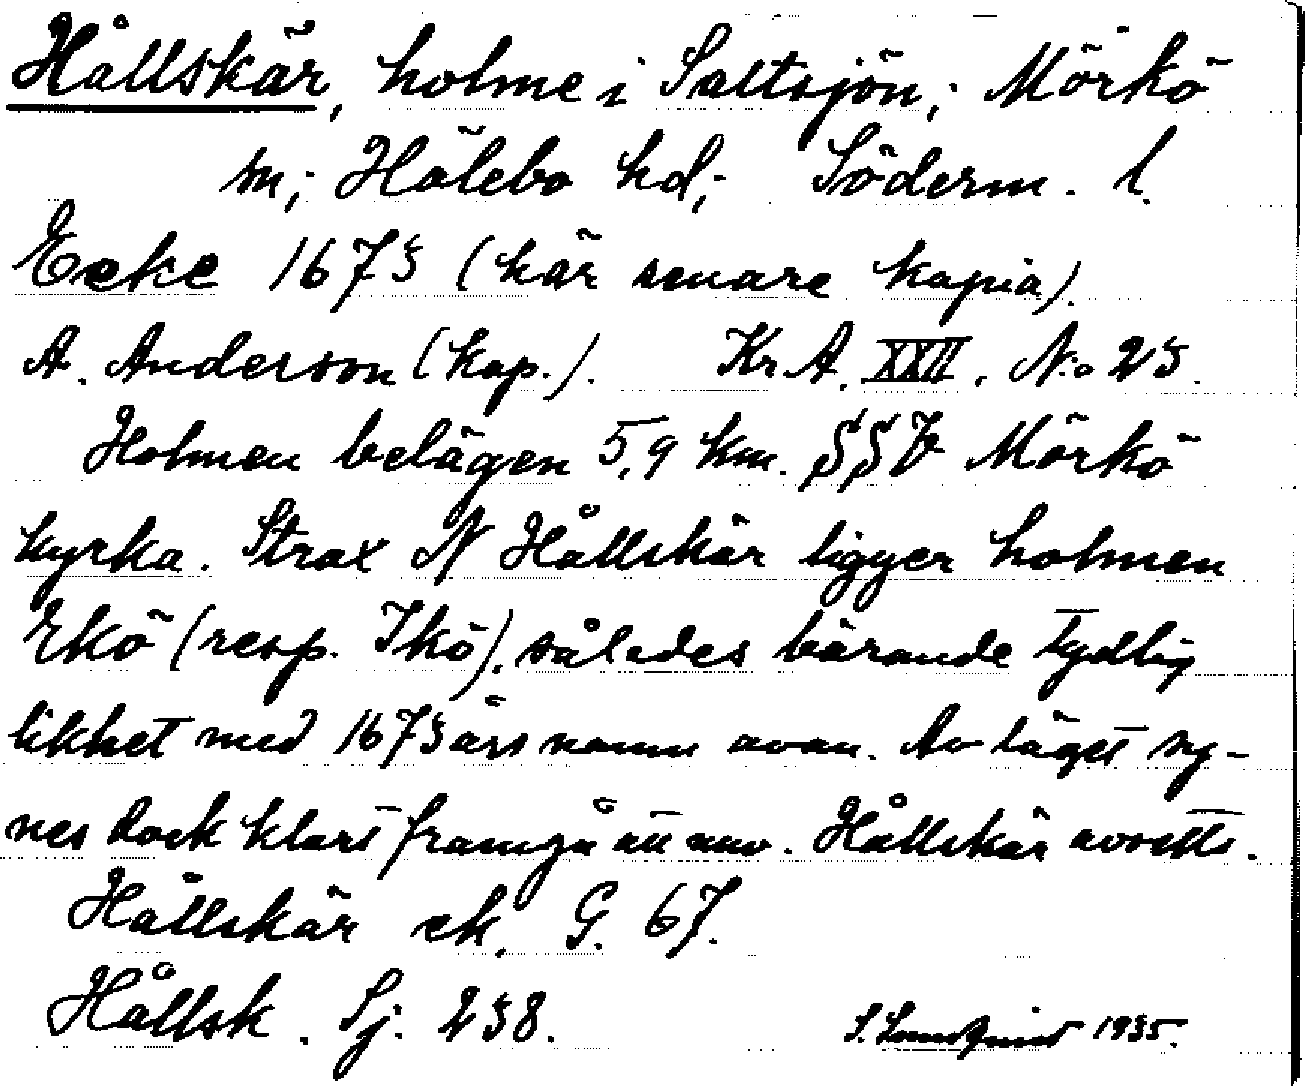 Hållskär, holme i Saltsjön; Mörkö
sn; Hölebo hd; Söderm. l.
Ecke 1675 (här senare kopia).
A. Anderson (kop.). Kr. A. XXII, No 25.
Holmen belägen 5,9 km. SSV Mörkö
kyrka. Strax N Hållskär ligger holmen
Ekö (resp. Ikö), således bärande tydlig
likhet med 1675 års namn ovan. Av läget sy-
nes dock klart framgå att nuv. Hållskär avsetts.
Hållskär ek. G. 67.
Hållsk. Sj. 238.
S. Lundquist 1935.